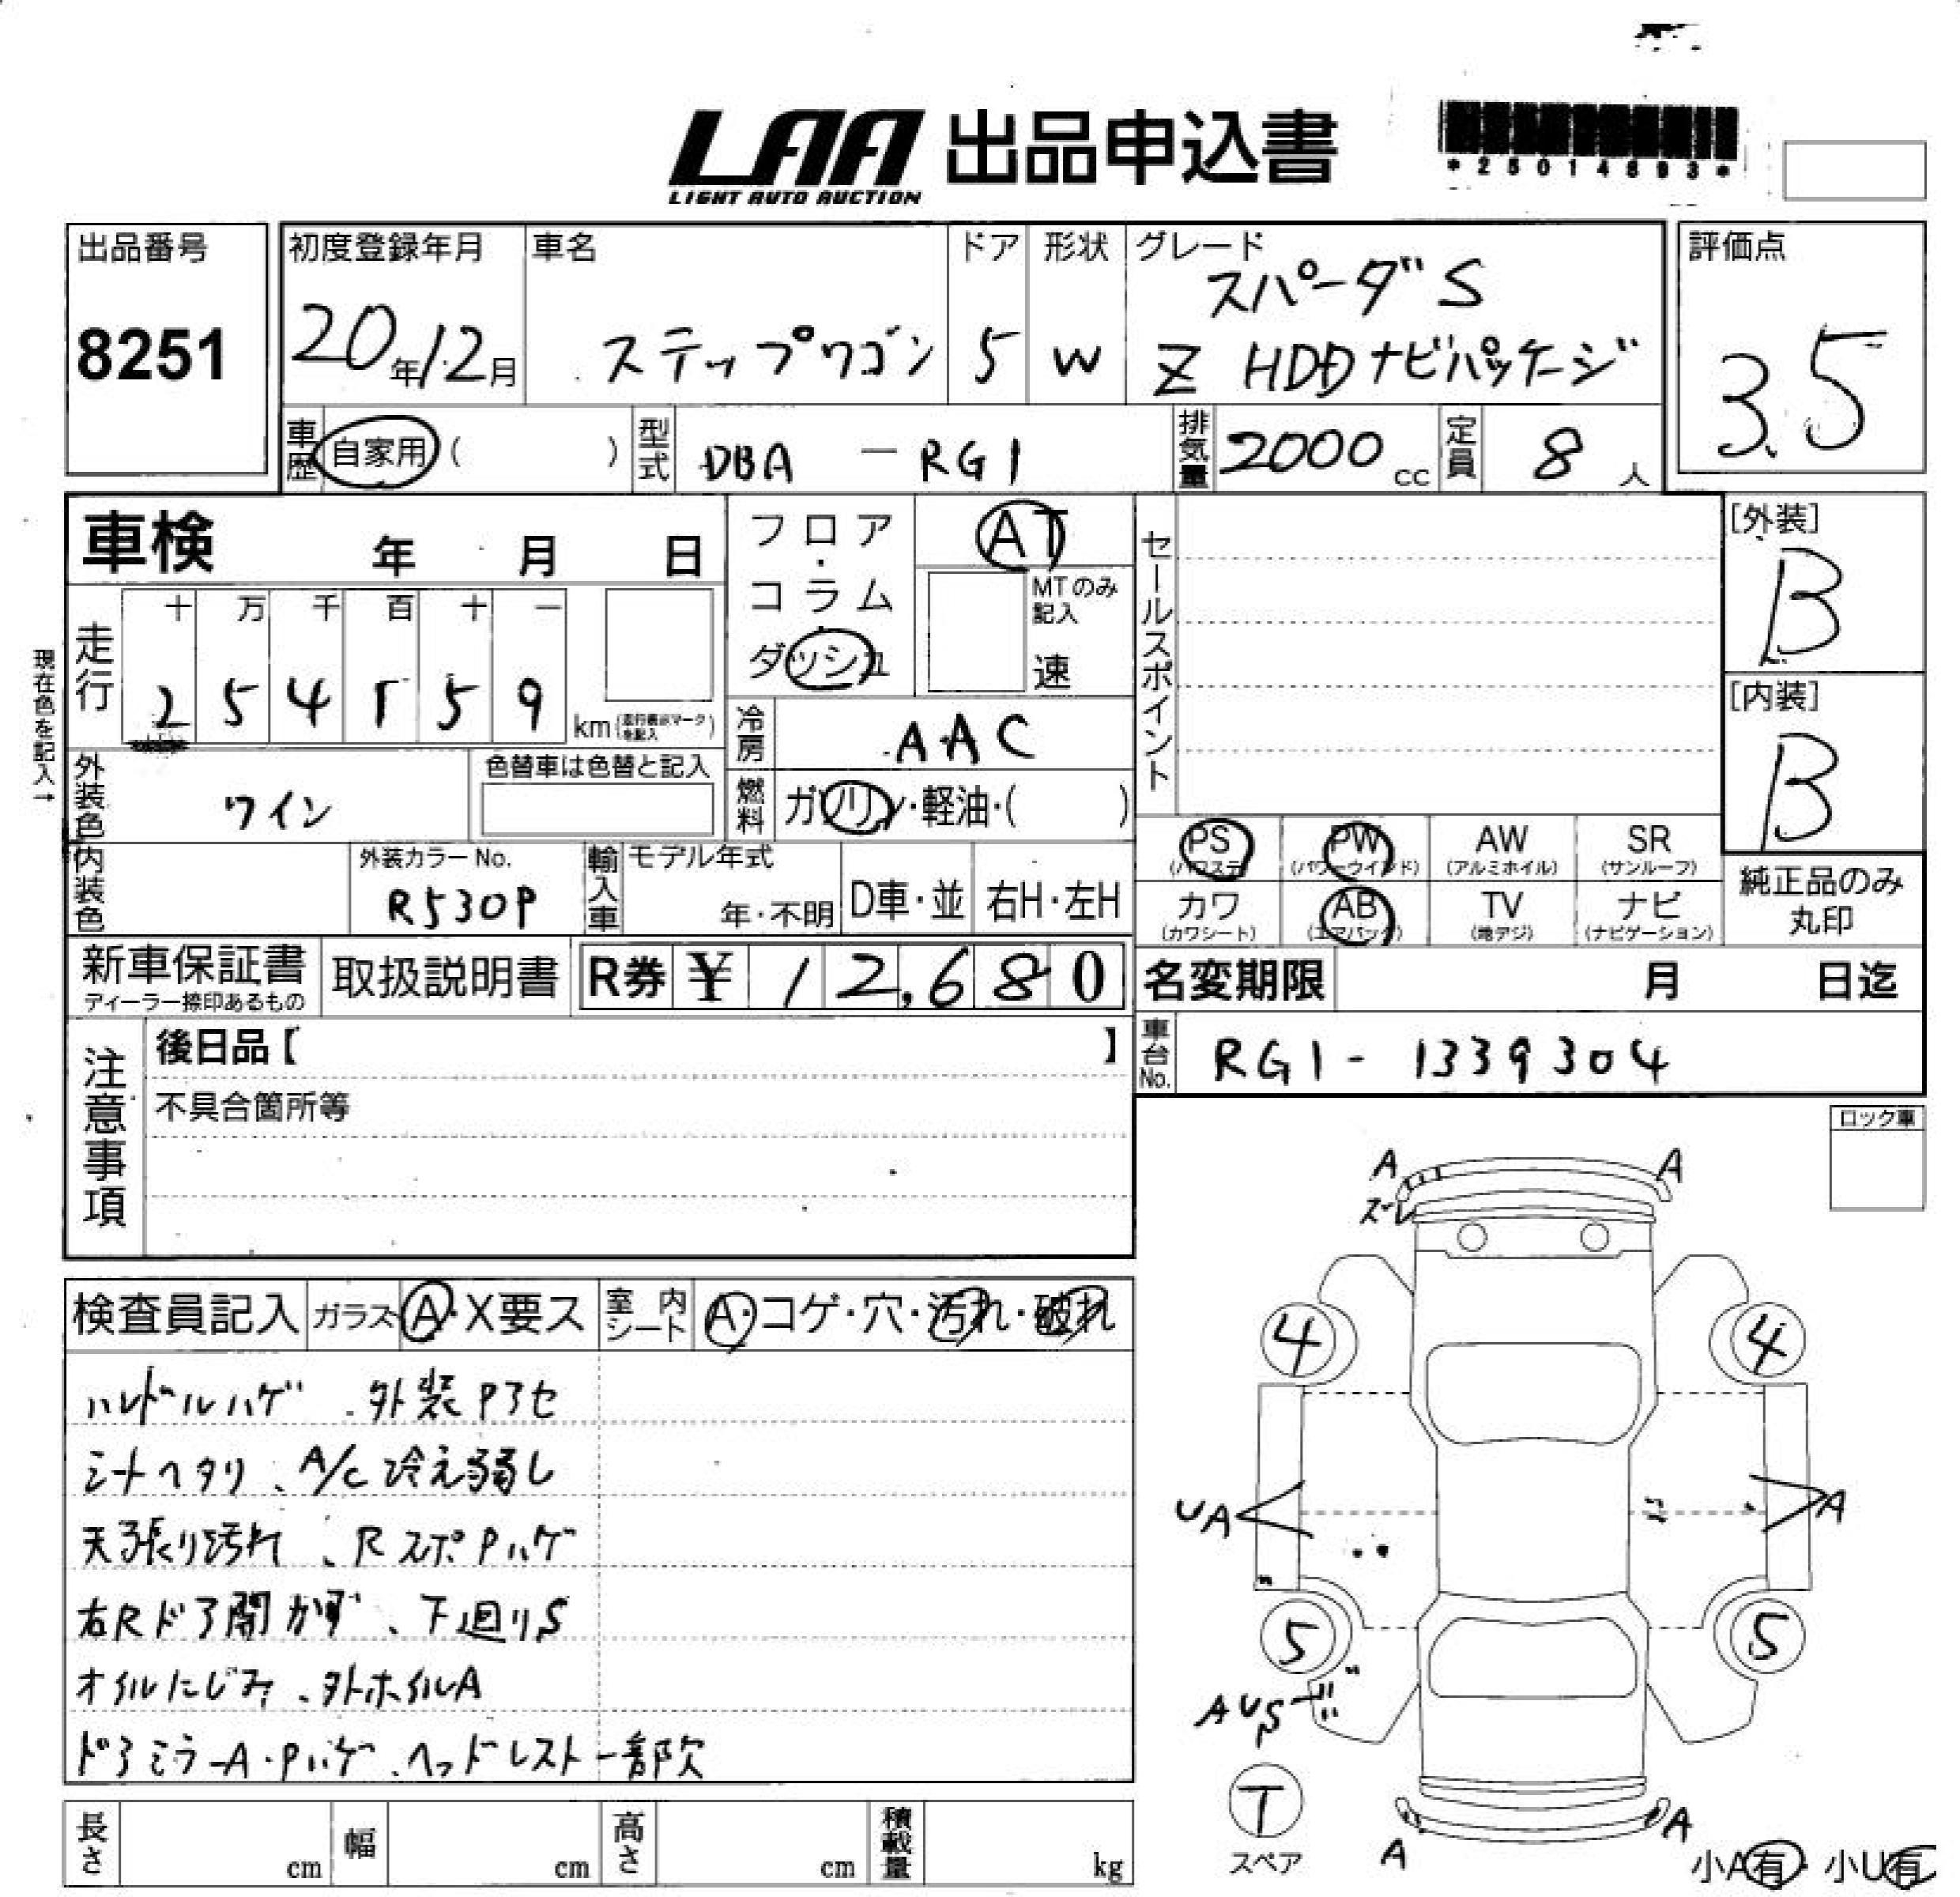 LAA 出品申込書
LIGHT AUTO AUCTION
*25014893*
出品番号
8251
初度登録年月
20年12月
車名
ステップワゴン
ドア
5
形状
W
グレード
スパーダS
Z HDDナビパッケージ
評価点
3.5
車歴 自家用 ( )
型式 DBA - RG1
排気量 2000 cc
定員 8 人
車検 年 月 日
フロア・コラム・ダッシュ
AT
MTのみ記入
速
セールスポイント
[外装]
B
[内装]
B
現在色を記入→
走行
十 万 千 百 十 一
2 5 4 1 5 9 km (走行表示マークを記入)
冷房 AAC
外装色 ワイン
色替車は色替と記入
燃料 ガソリン・軽油・( )
内装色
外装カラーNo.
R530P
輸入車 モデル年式
年・不明
D車・並 右H・左H
PS (パワステ) PW (パワーウインド) AW (アルミホイル) SR (サンルーフ)
カワ (カワシート) AB (エアバッグ) TV (地デジ) ナビ (ナビゲーション)
純正品のみ丸印
新車保証書
ディーラー捺印あるもの
取扱説明書
R券 ¥ 12,680
名変期限 月 日迄
車台No. RG1-1339304
注意事項
後日品【 】
不具合箇所等
ロック車
検査員記入 ガラス A・X要ス 室内シート A・コゲ・穴・汚れ・破れ
ハンドルハゲ、外装Pアセ
シートヘタリ、A/C冷え弱し
天張り汚れ、RスポPハゲ
右Rドア開かず、下廻りS
オイルにじみ、外ホイルA
ドアミラーA・Pハゲ、ヘッドレスト一部欠
A A
ズレ
4 4
UA A
5 5
AUS
T
スペア
A A
小A有・小U有
長さ cm 幅 cm 高さ cm 積載量 kg